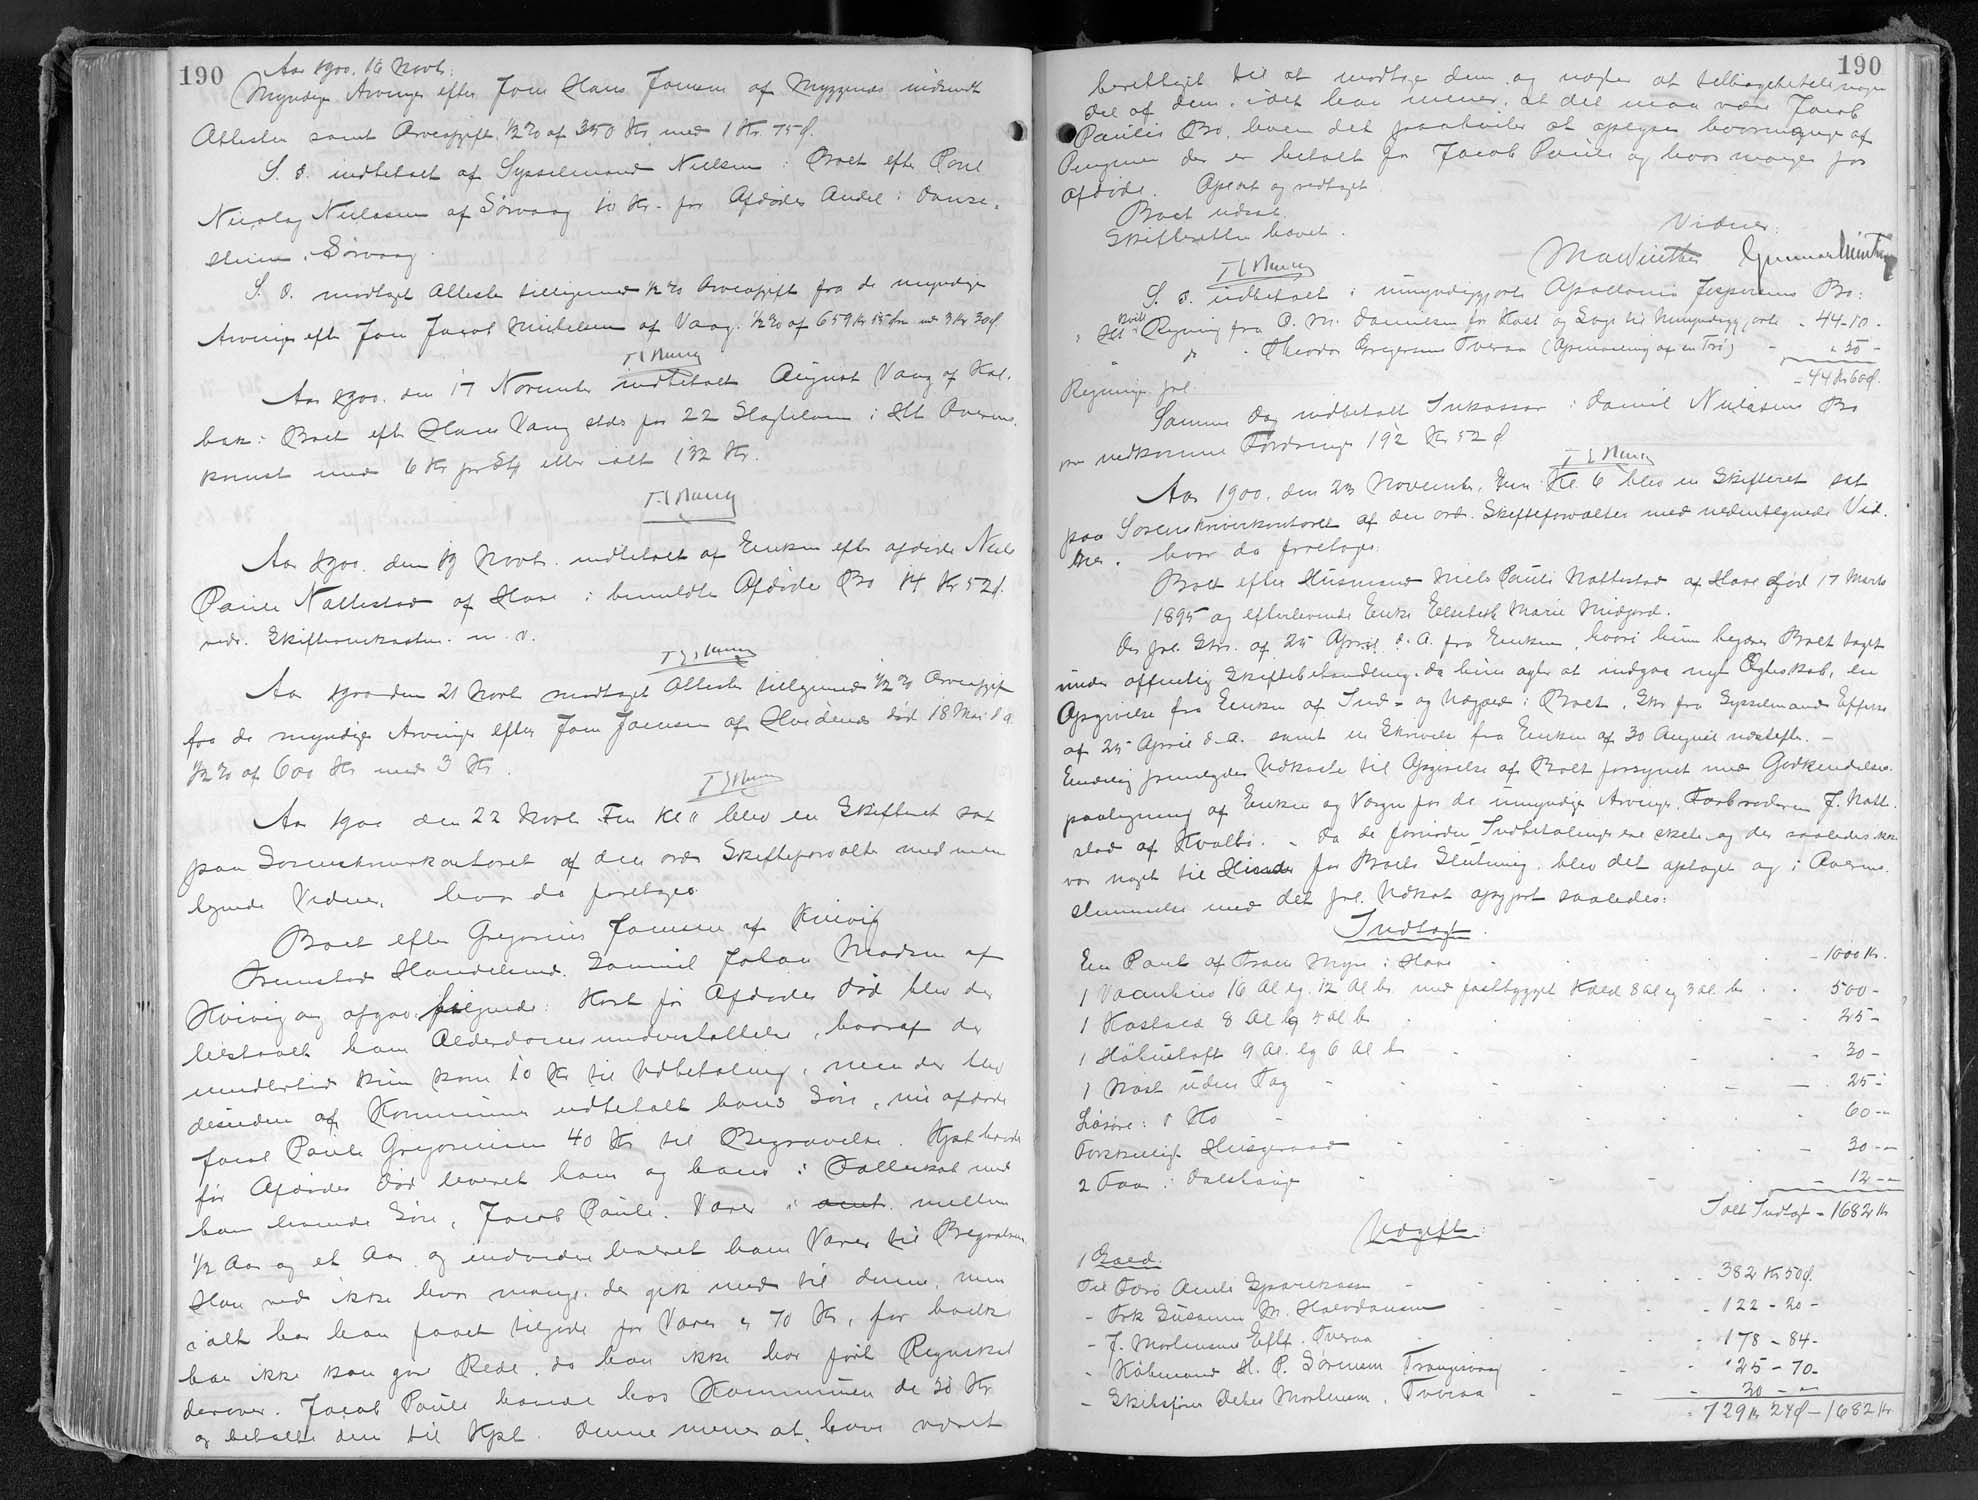 190
Aar 1900. 16 Novb.
Myndige Arvinger efter Joen Hans Joensen af Myggenæs indsendt
Attester samt Arveafgift 1/2 % af 350 Kr. med 1 Kr. 75 Ø.
S. D. indbetalt af Sysselmand Nielsen i Boet efter Poul
Nicolaj Nielsen af Sørvaag 10 Kr. for Afdødes Andel i Danse-
stuen i Sørvaag.
S. D. modtaget Attester tilligemed 1/2 % Arveafgift fra de myndige
Arvinger efter Joen Jacob Mikkelsen af Vaag. 1/2 % af 659 Kr 15 Øre med 3 Kr 30 Ø
Aar 1900. den 17 November indbetalt August Vang af Hal-
bak i Boet efter Hans Vang for 22 i Hlt Overens-
komst med 6 Kr pr Stk eller ialt 132 Kr.
Aar 1900. den 19 Novb. indbetalt af Enken efter afdøde Niels
Pauli Nattestad af Hove i bemeldte Afdødes Bo 14 Kr 52 Ø.
vedr. Skifteomkostn. m. v.
Aar 1900 den 21 Novb modtaget Attester tilligemed 1/2 % Arveafgift
fra de myndige Arvinger efter Joen Joensen af Hvidenæs død 18 Mai d. A.
1/2 % af 600 Kr med 3 Kr.
Aar 1900 den 22 Novb. Fm Kl 11 blev en Skifteret sat
paa Sorenskriverkontoret af den ord. Skifteforvalter med under-
tegnede Vidner, hvor da foretages
Boet efter Gregorius Joensen af Kvivig
Fremstod Handelsmd. Samuel Johan Madsen af
Kvivig og afgav følgende: Kort før Afdødes Død blev der
tilstaaet ham Alderdomsunderstøttelse, hvoraf der
imidlertid kun kom 10 Kr til Udbetaling, men der blev
desuden af Kommunen udbetalt hans Søn, nu afdøde
Jacob Pauli Gregoriussen 40 Kr til Begravelse. Kpt havde
før Afdødes Død leveret ham og hans i Fællesskab med
ham levende Søn, Jacob Pauli. Varer i mellem
1/2 Aar og et Aar og endvidere leveret ham Varer til Begravelsen
Han ved ikke hvor mange der gik med til denne, men
ialt har han faaet tilgode for Varer 70 Kr, for hvilke
han ikke kan gøre Rede, da han ikke har ført Regnskab
derover. Jacob Pauli hævede hos Kommunen de 30 Kr
og betalte dem til Kpt. Denne mener at have været
190
berettiget til at modtage dem og nægter at tilbagebetale nogen
Del af dem, idet han mener, at det maa være Jacob
Paulis Bo, hvem det paahviler at oplyse hvormange af
Pengene der er betalt for Jacob Pauli og hvor mange for
Afdøde. Oplæst og vedtaget.
Boet udsat.
Skifteretten hævet.
Vidner:
S. D. udbetalt i umyndiggjorte Apollonia Jespersens Bo:
Regning fra O. M. Danielsen for Kost og Logi til Umyndiggjorte - 44-10-
" do - Theodor Gregersen Tveraa (Opmaaling af en Trø) - " 50 -
- 44 Kr 60 Ø.
Regninger frl.
Samme Dag indbetalt Inkassator i Daniel Nielsens Bo
vedkomne Fordringer 192 Kr 52 Ø
Aar 1900. den 23 November, Em Kl. 6 blev en Skifteret sat
paa Sorenskriverkontoret af den ord. Skifteforvalter med undertegnede Vid-
ner, hvor da foretages:
Boet efter Husmand Niels Pauli Nattestad af Hove død 17 Marts
1895 og efterlevende Enke Elsebeth Marie Midjord.
Der frl. Skr. af 25 April d. A. fra Enken, hvori hun begærer Boet taget
under offentlig Skiftebehandling, da hun agter at indgaa nyt Ægteskab, en
Opgivelse fra Enken af Ind- og Udgæld i Boet, Skr fra Sysselmand Effersø
af 25 April d. A. samt en Skrivelse fra Enken af 30 August næstefter. -
Endelig fremlagdes Udkast til Opgørelse af Boet forsynet med Godkendelses-
paategning af Enken og Værge for de umyndige Arvinger, Farbroderen J. Natte-
stad af Kvalbø. - Da de fornødne Indbetalinger ere skete og der saaledes ikke
var noget til Hinder for Boets Slutning, blev det optaget og i Overens-
stemmelse med det frl. Udkast opgjort saaledes:
Indtægt.
En Part af Fram Myre i Hove - 1000 Kr.
1 Vaanhus 16 Al lg. 12 Al br. med fastbygget Hjald 8 Al lg 3 Al br. 500 -
1 Kostald 8 Al lg 5 Al br 25 -
1 Høhustoft 9 Al. lg 6 Al br - 30 -
1 Nøst uden Tag - 25 -
Løsøre: 1 Ko - 60 -
Forskelligt Husgeraad - 30 -
2 Faar i - 12 -
Ialt Indtægt - 1682 Kr
Udgift:
1 Gæld.
Til Færø Amts Sparekasse 382 Kr 50 Ø.
- Frk Susanne M. Halvdansen - 122 - 20 -
- J. Mortensens Eftf. Tveraa - 178 - 84 -
- Købmand H. P. Sørensen Trangisvaag - 25 - 70 -
- Skibsfører Debes Mortensen, Tveraa - 30 - "
- 729 Kr 24 Ø - 1682 Kr